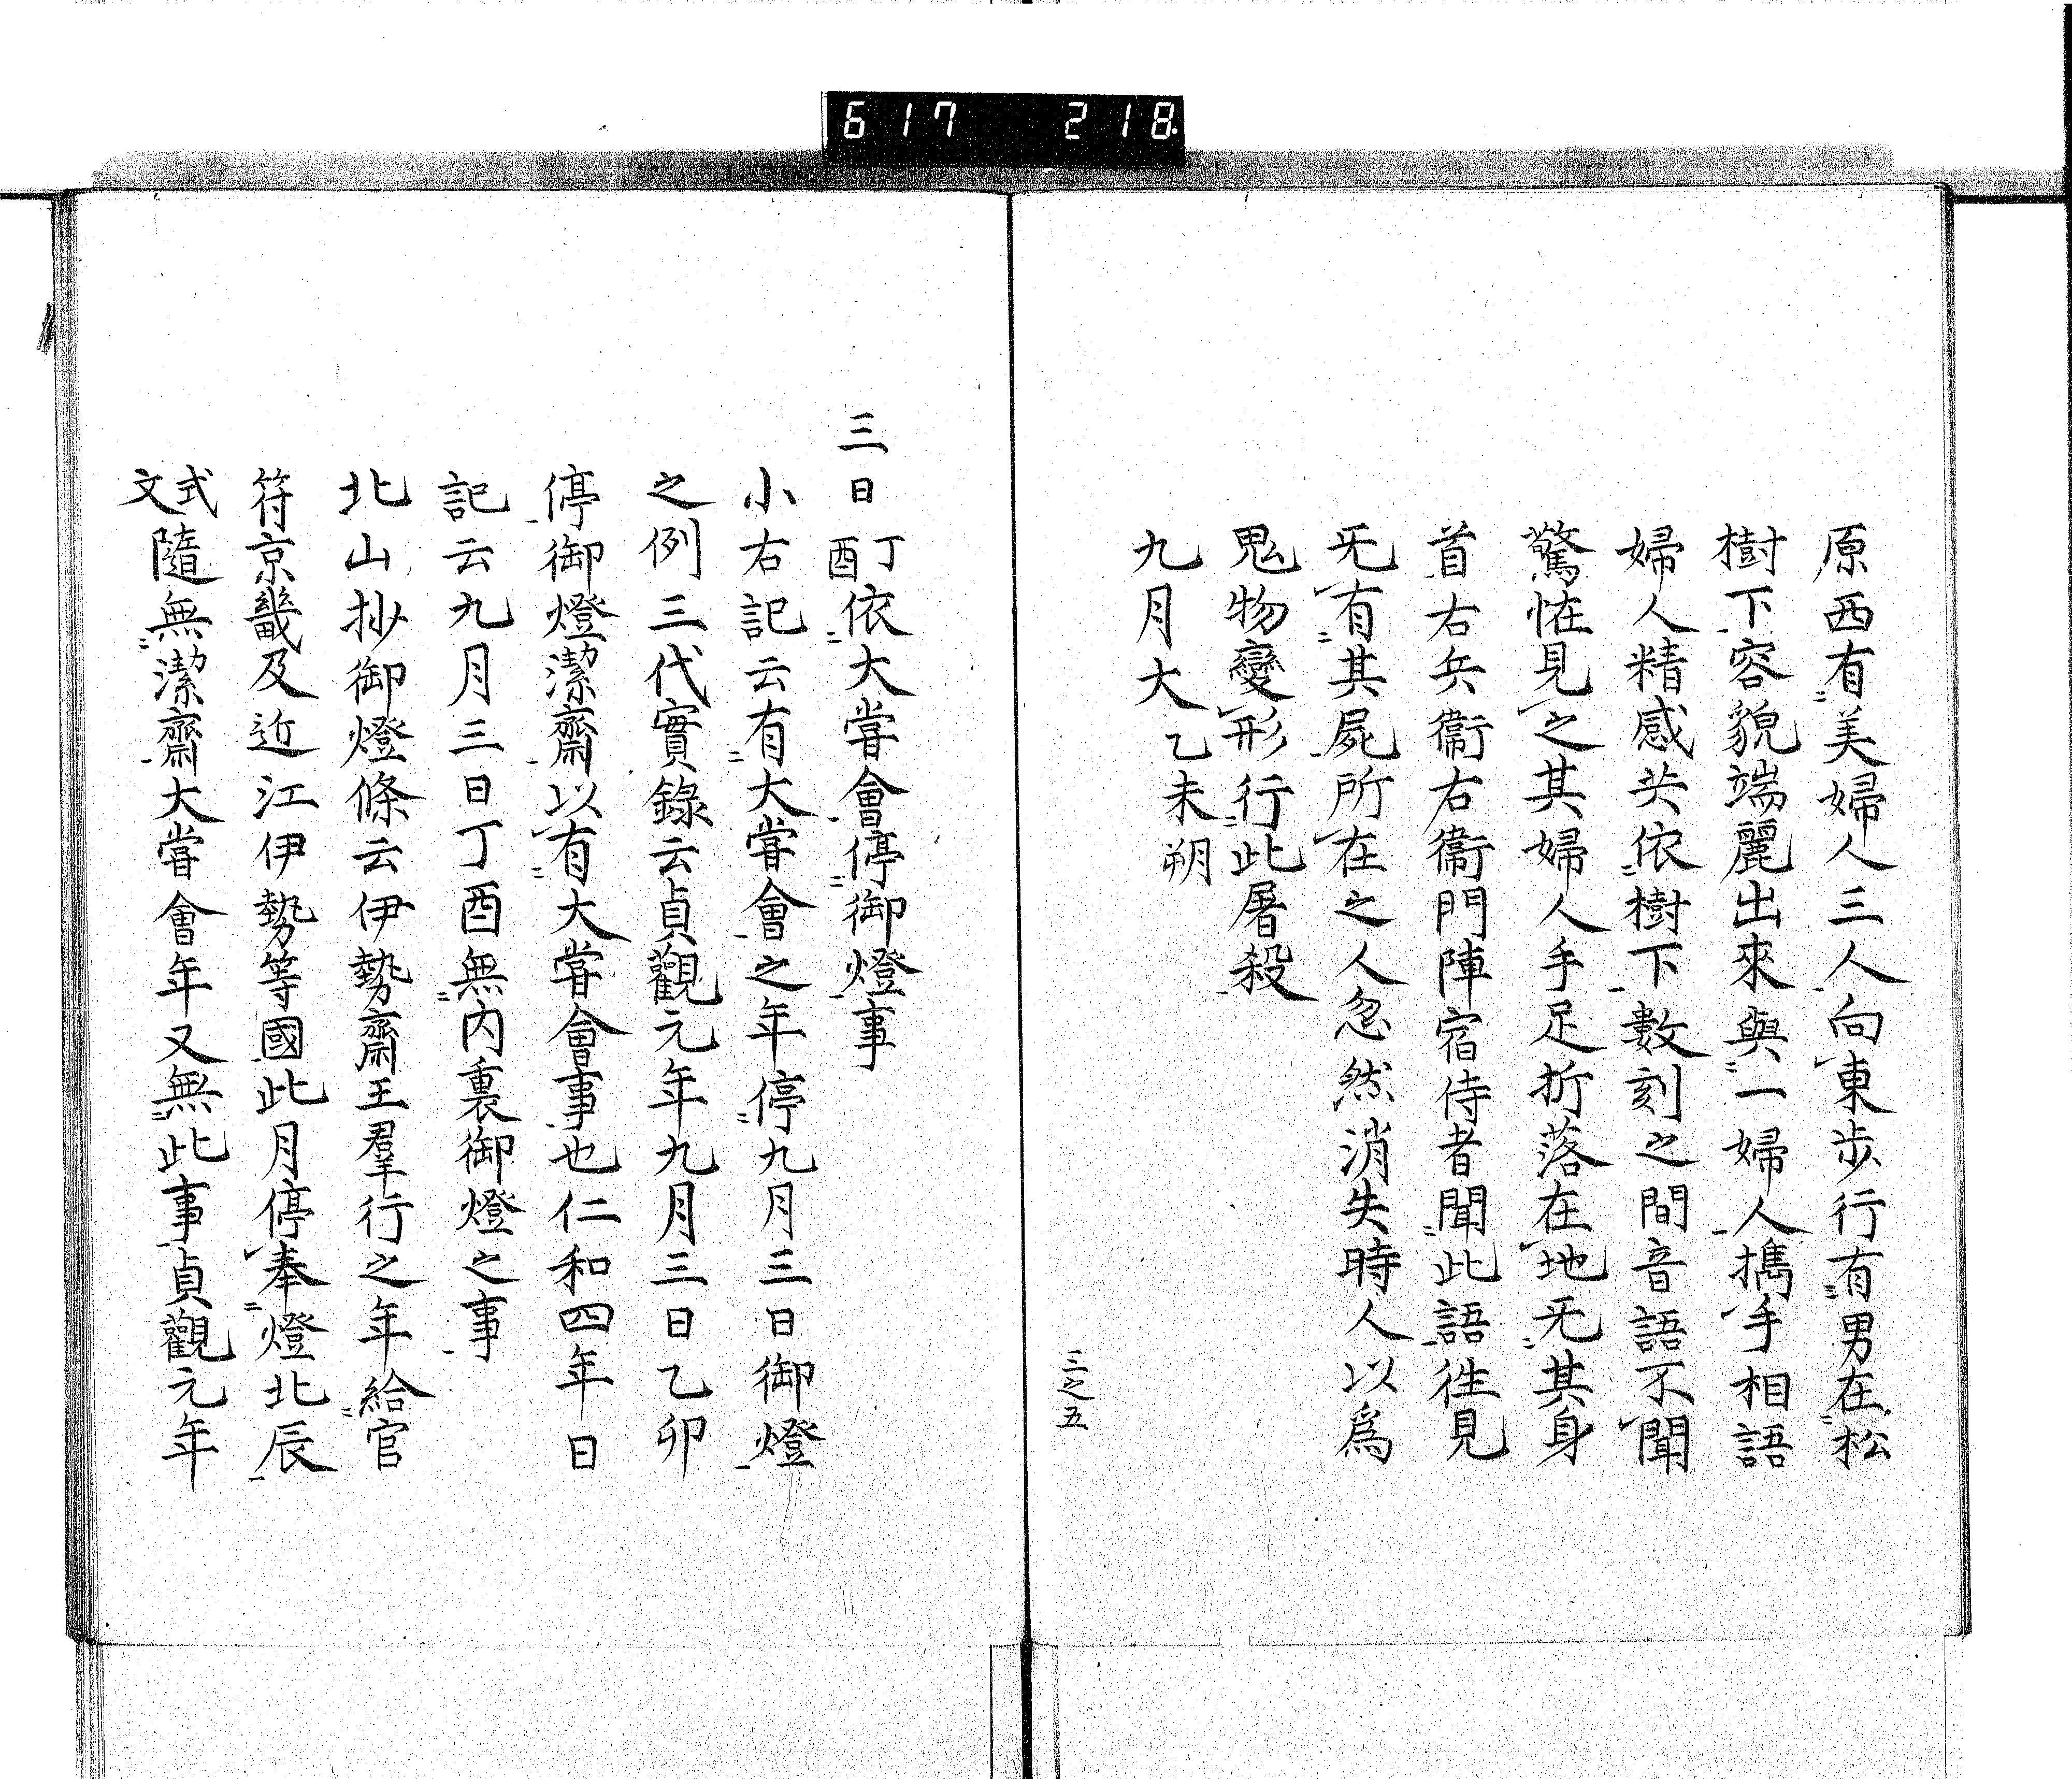 617 218
原西有美婦人三人向東歩行有男在松
樹下容貌端麗出來與一婦人攜手相語
婦人精感共依樹下數刻之間音語不聞
驚恠見之其婦人手足折落在地无其身
首右兵衞右衞門陣宿侍者聞此語徃見
无有其屍所在之人忽然消失時人以爲
鬼物變形行此屠殺
九月大乙未朔
三之五
三日丁酉依大甞會停御燈事
小右記云有大甞會之年停九月三日御燈
之例三代實錄云貞觀元年九月三日乙卯
停御燈潔齋以有大甞會事也仁和四年日
記云九月三日丁酉無内裏御燈之事
北山抄御燈條云伊勢齋王羣行之年給官
符京畿及近江伊勢等國此月停奉燈北辰
式文隨無潔齋大甞會年又無此事貞觀元年